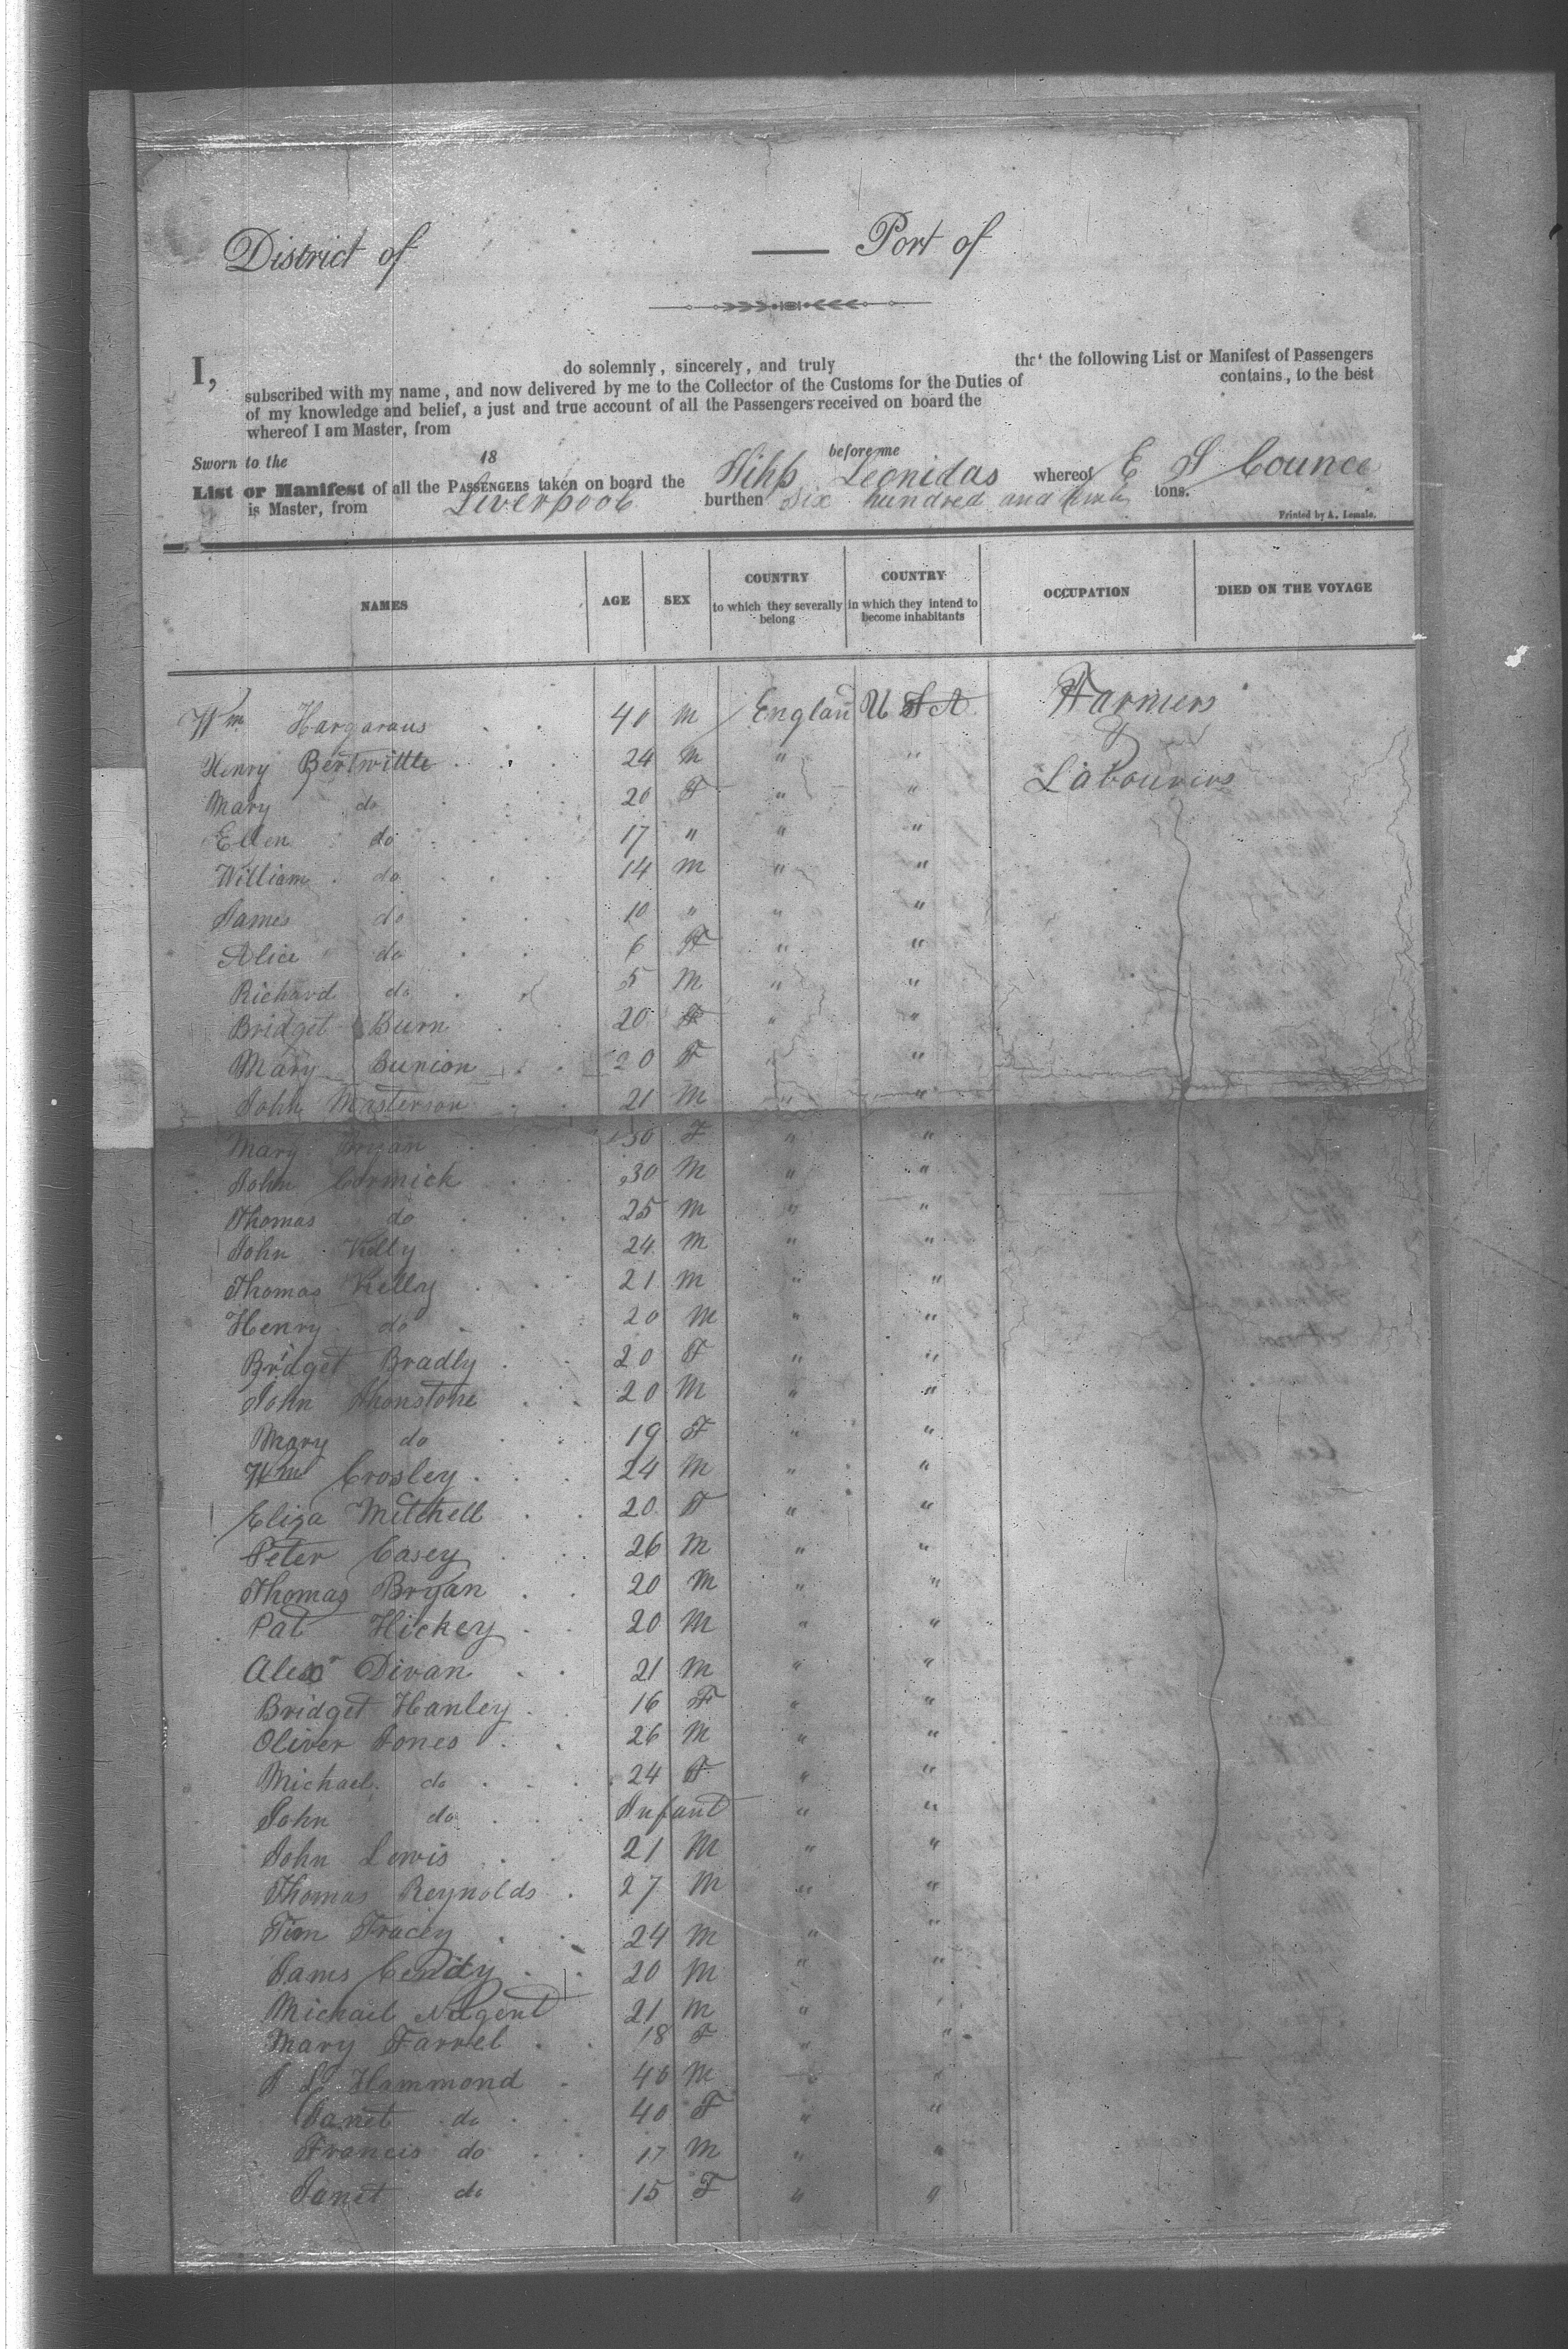 District of — Port of
I, do solemnly, sincerely, and truly that the following List or Manifest of Passengers
subscribed with my name, and now delivered by me to the Collector of the Customs for the Duties of contains, to the best
of my knowledge and belief, a just and true account of all the Passengers received on board the
whereof I am Master, from
Sworn to the 18 before me
List or Manifest of all the PASSENGERS taken on board the Shipp Leonidas whereof E S Counce
is Master, from Liverpool burthen Six hundred and tons.
Printed by A. Lemale.
NAMES AGE SEX COUNTRY to which they severally belong COUNTRY in which they intend to become inhabitants OCCUPATION DIED ON THE VOYAGE
Wm Hargaraus 40 M England U S A Farmers
Henry Bertwittle 24 M " "
Mary do 20 F " " Labourers
Ellen do 17 " " "
William do 14 M " "
James do 10 " " "
Alice do 6 F " "
Richard do 5 M " "
Bridget Burn 20 F " "
Mary Bunion 20 F " "
John Masterson 21 M " "
Mary Bryan 30 F " "
John Cormick 30 M " "
Thomas do 25 M " "
John Kelly 24 M " "
Thomas Kelly 21 M " "
Henry do 20 M " "
Bridget Bradly 20 F " "
John Jhonstone 20 M " "
Mary do 19 F " "
Wm Crosley 24 M " "
Eliza Mitchell 20 F " "
Peter Casey 26 M " "
Thomas Bryan 20 M " "
Pat Hickey 20 M " "
Alexr Divan 21 M " "
Bridget Hanley 16 F " "
Oliver Jones 26 M " "
Michael do 24 F " "
John do Infant " "
John Lewis 21 M " "
Thomas Reynolds 27 M " "
Tim Tracey 24 M " "
James 20 M " "
Michael Nugent 21 M " "
Mary Farrel 18 F " "
J L Hammond 40 M " "
Janet do 40 F " "
Francis do 17 M " "
Janet do 15 F " "